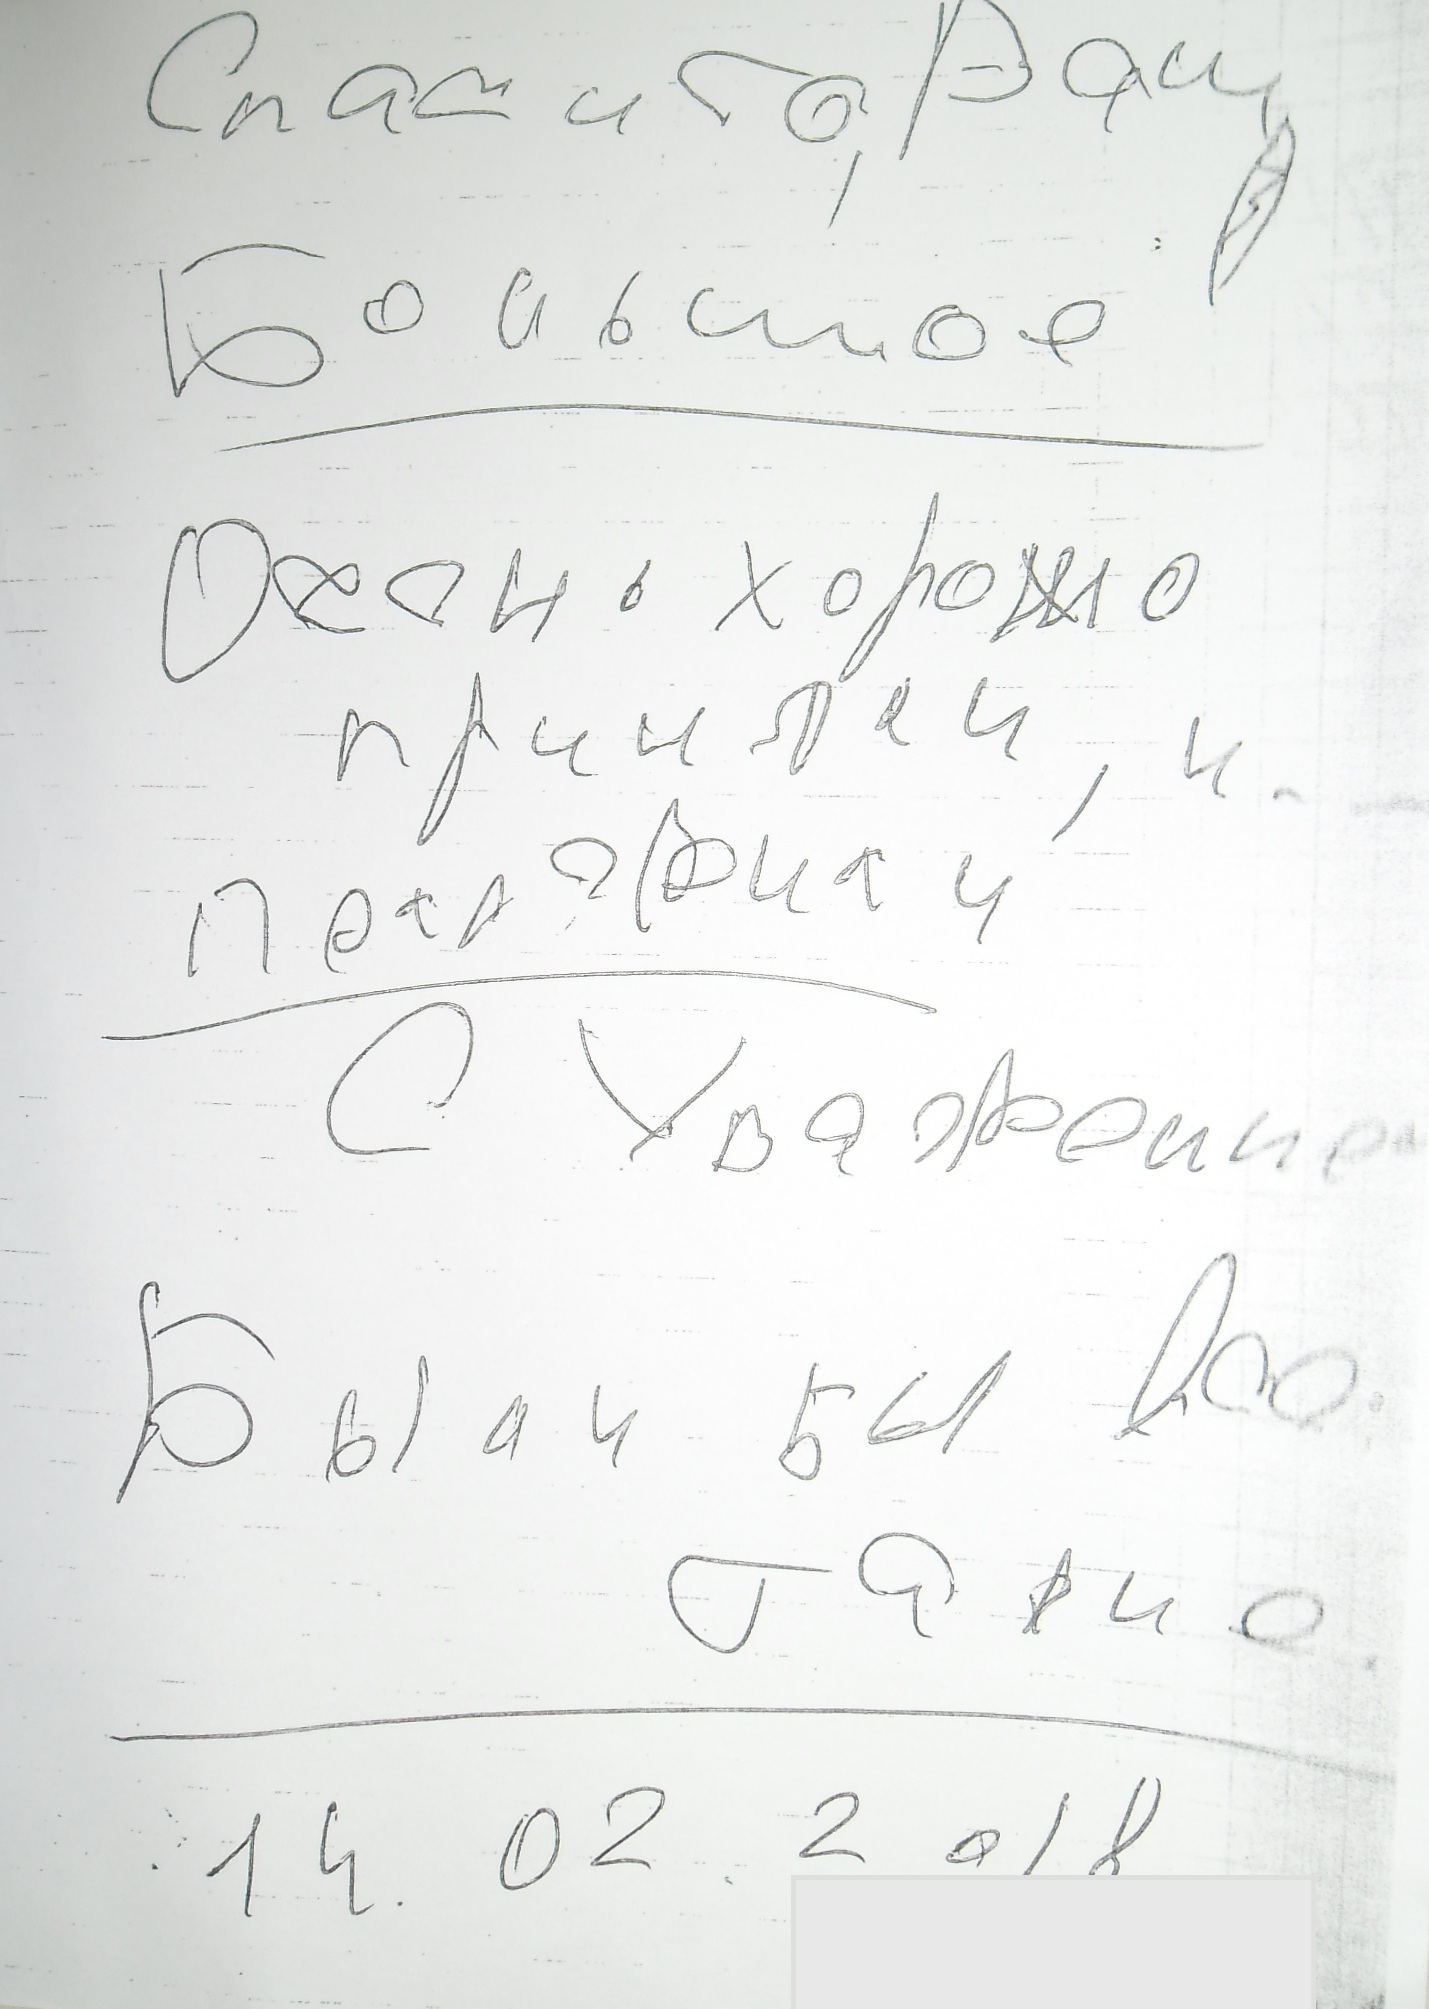 Спасибо, Вам
Большое
Очень хорошо
приняли, и
поддержали
С Уважением
Были бы все
такие.
14.02.2018